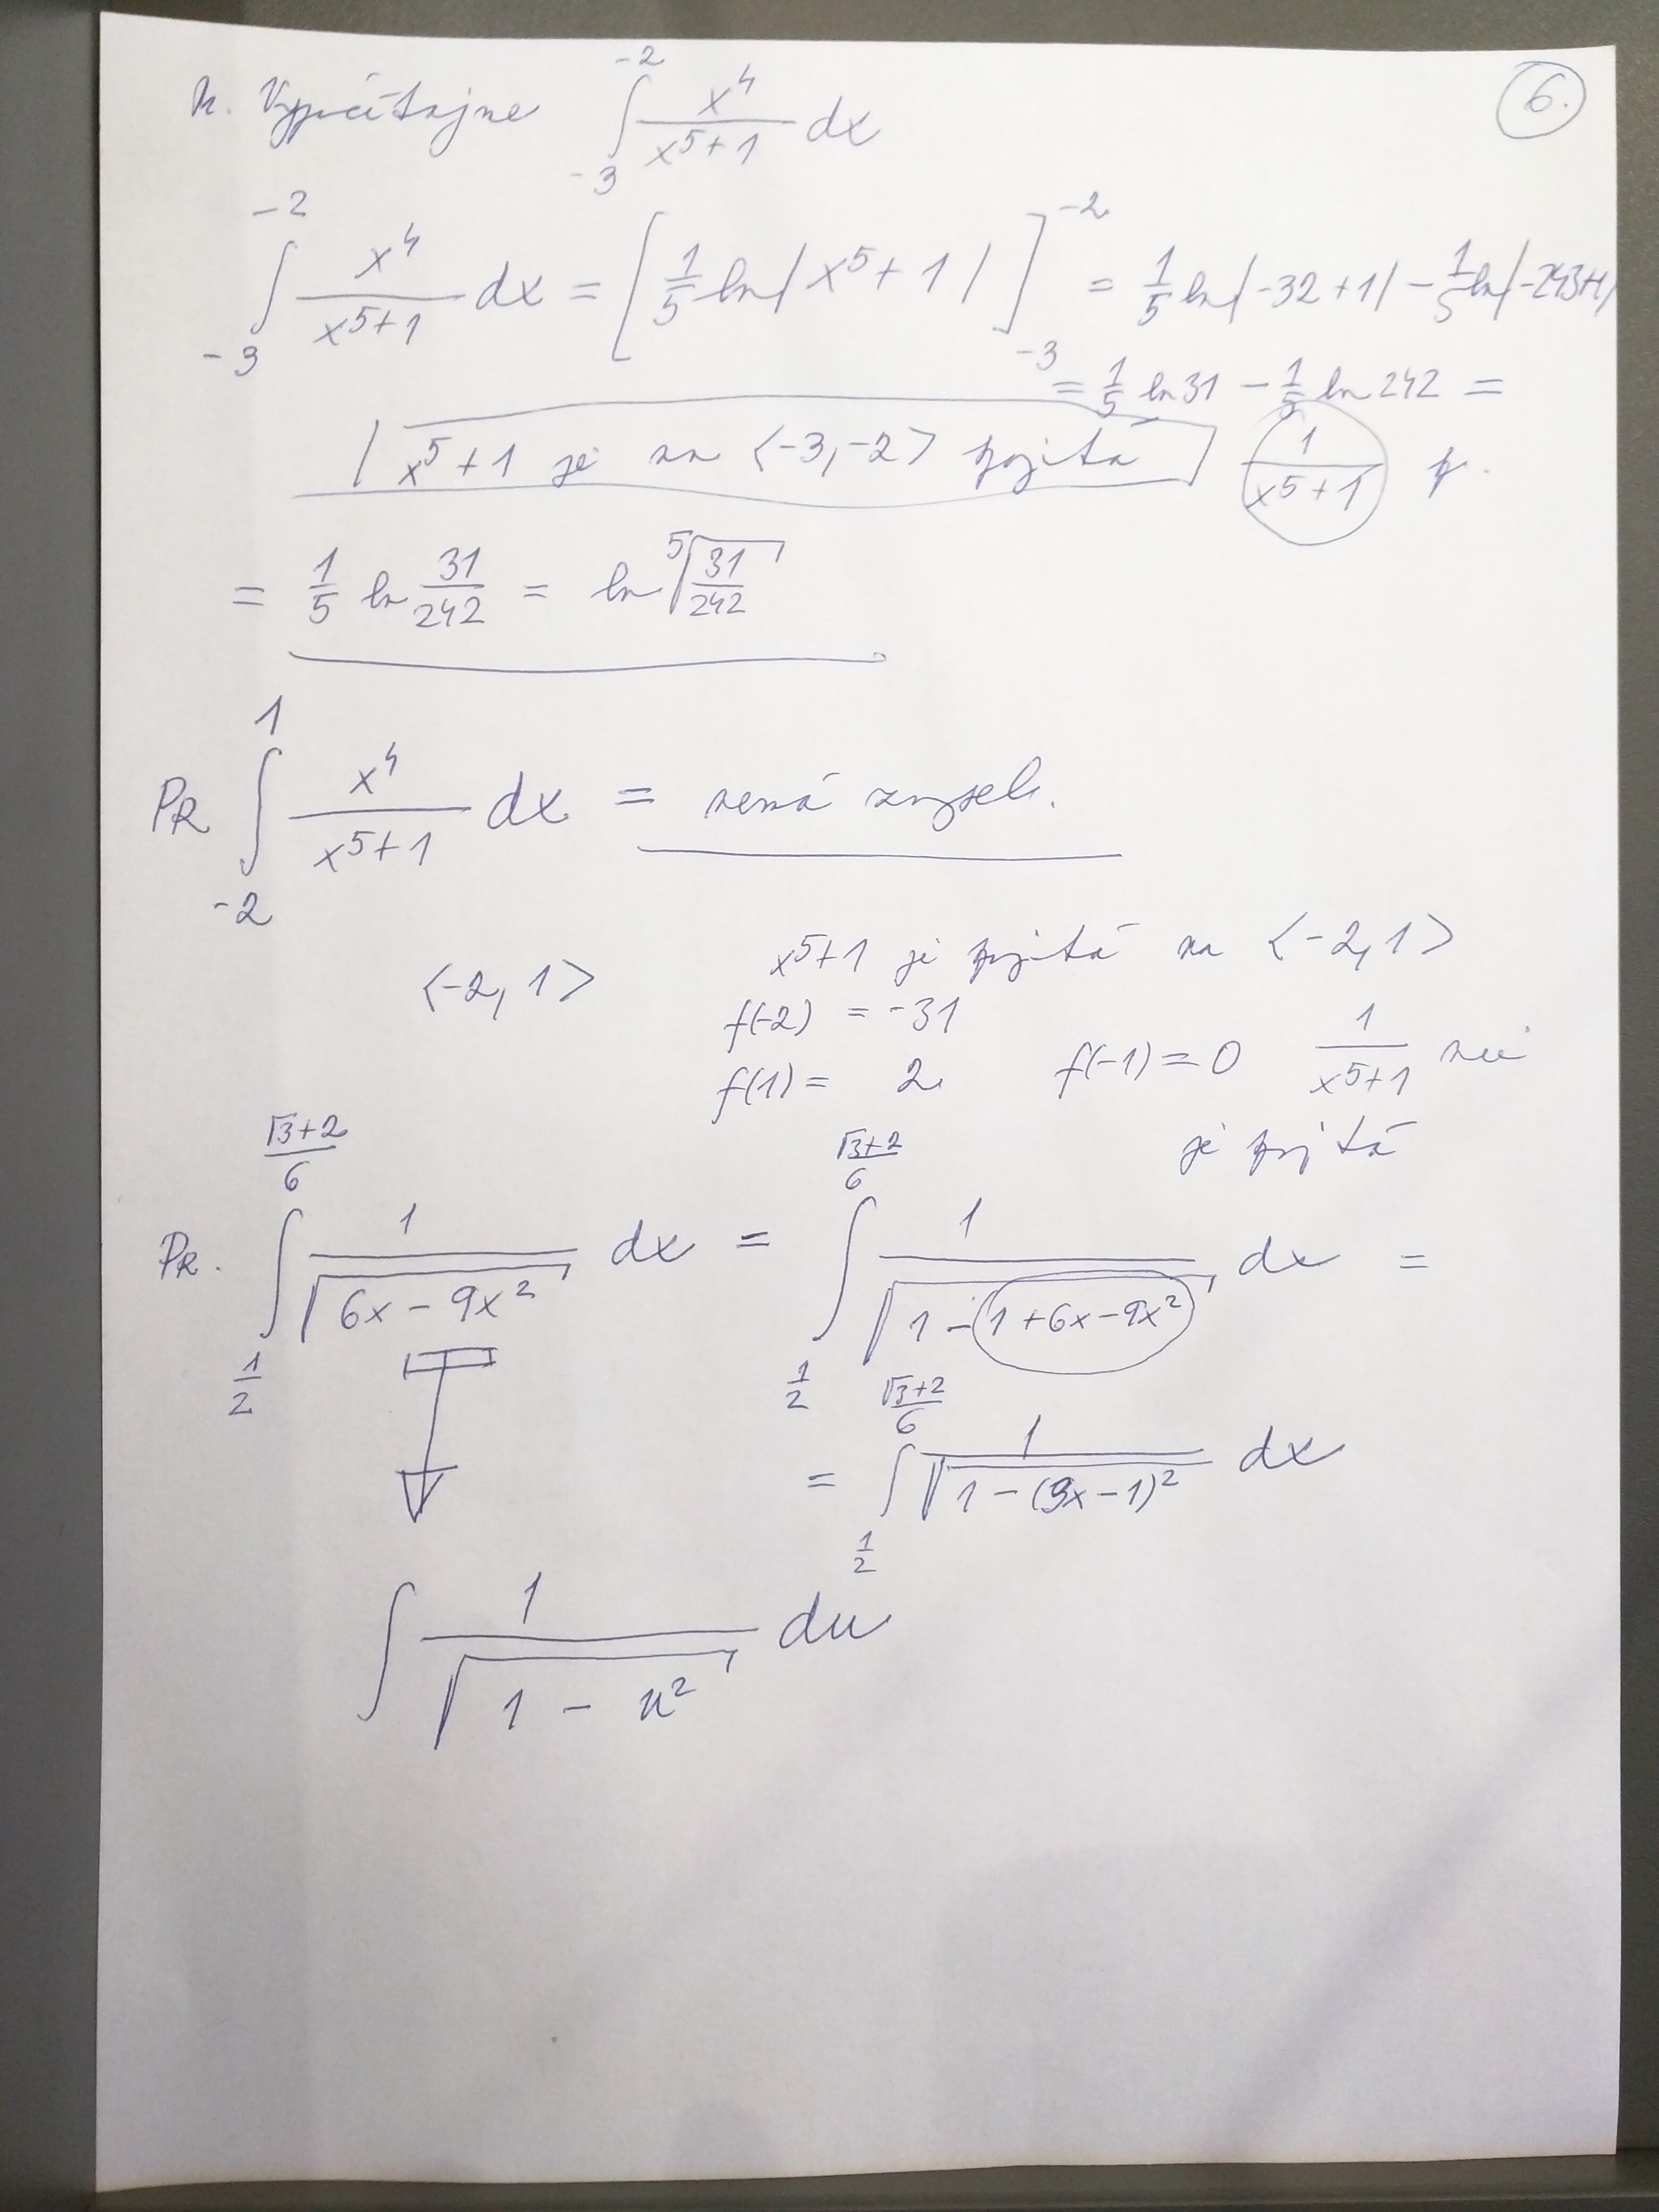 Pr. Vypočítajme ∫_{-3}^{-2} x⁴/(x⁵+1) dx
6.
∫_{-3}^{-2} x⁴/(x⁵+1) dx = [1/5 ln|x⁵+1|]_{-3}^{-2} = 1/5 ln|-32+1| - 1/5 ln|-243+1|
= 1/5 ln 31 - 1/5 ln 242 =
x⁵+1 je na <-3,-2> spojitá 1/(x⁵+1) sp.
= 1/5 ln 31/242 = ln ⁵√(31/242)
PR ∫_{-2}^{1} x⁴/(x⁵+1) dx = nemá zmysel.
<-2, 1> x⁵+1 je spojitá na <-2,1>
f(-2) = -31
f(1) = 2 f(-1) = 0 1/(x⁵+1) nie
je spojitá
PR. ∫_{1/2}^{(√3+2)/6} 1/√(6x-9x²) dx = ∫_{1/2}^{(√3+2)/6} 1/√(1-(1+6x-9x²)) dx =
= ∫_{1/2}^{(√3+2)/6} 1/√(1-(3x-1)²) dx
∫ 1/√(1-u²) du